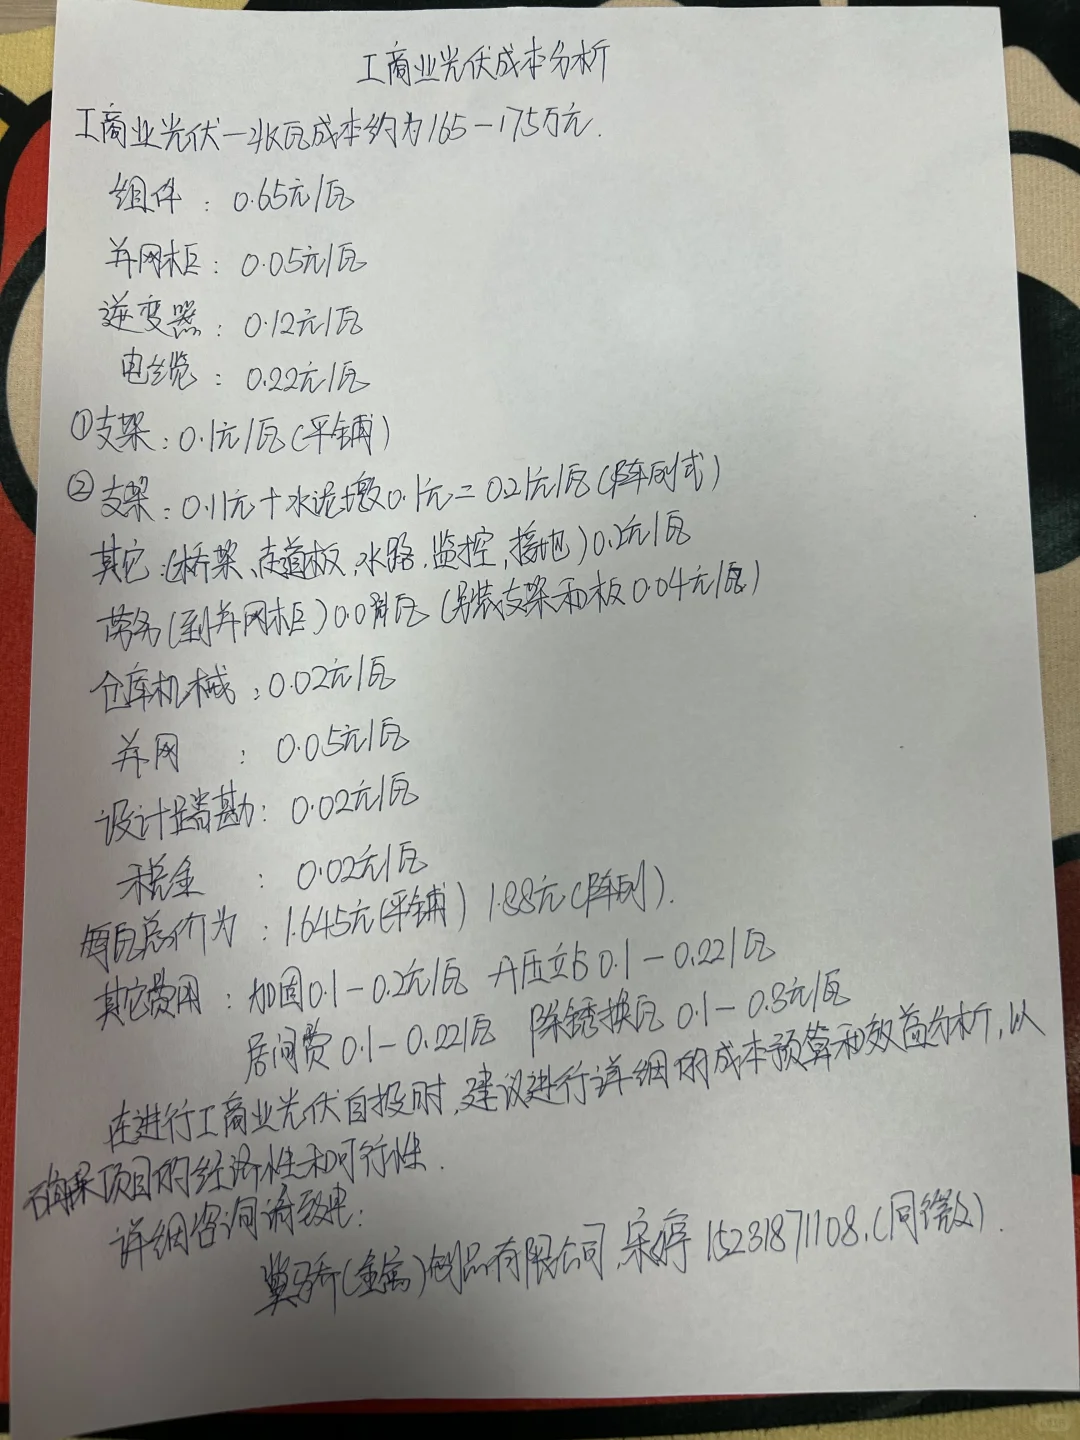 工商业光伏成本分析
工商业光伏一兆瓦成本约为165-175万元.
组件：0.65元/瓦
并网柜：0.05元/瓦
逆变器：0.12元/瓦
电缆：0.22元/瓦
①支架：0.1元/瓦(平铺)
②支架：0.11元+水泥墩0.1元=0.21元/瓦(阵列式)
其它：(桥架、走道板,水路,监控,接地)0.2元/瓦
劳务(到并网柜) (另装支架和板0.04元/瓦)
仓库机械：0.02元/瓦
并网：0.05元/瓦
设计踏勘：0.02元/瓦
税金：0.02元/瓦
每瓦总价为：1.645元(平铺) 1.88元(阵列).
其它费用：加固0.1-0.2元/瓦 升压站0.1-0.22/瓦
居间费0.1-0.22/瓦 除锈换瓦0.1-0.3元/瓦
在进行工商业光伏自投时,建议进行详细的成本预算和效益分析,以
确保项目的经济性和可行性.
详细咨询请致电：
骄(金属)制品有限公司,宋婷 15231871108.(同微).